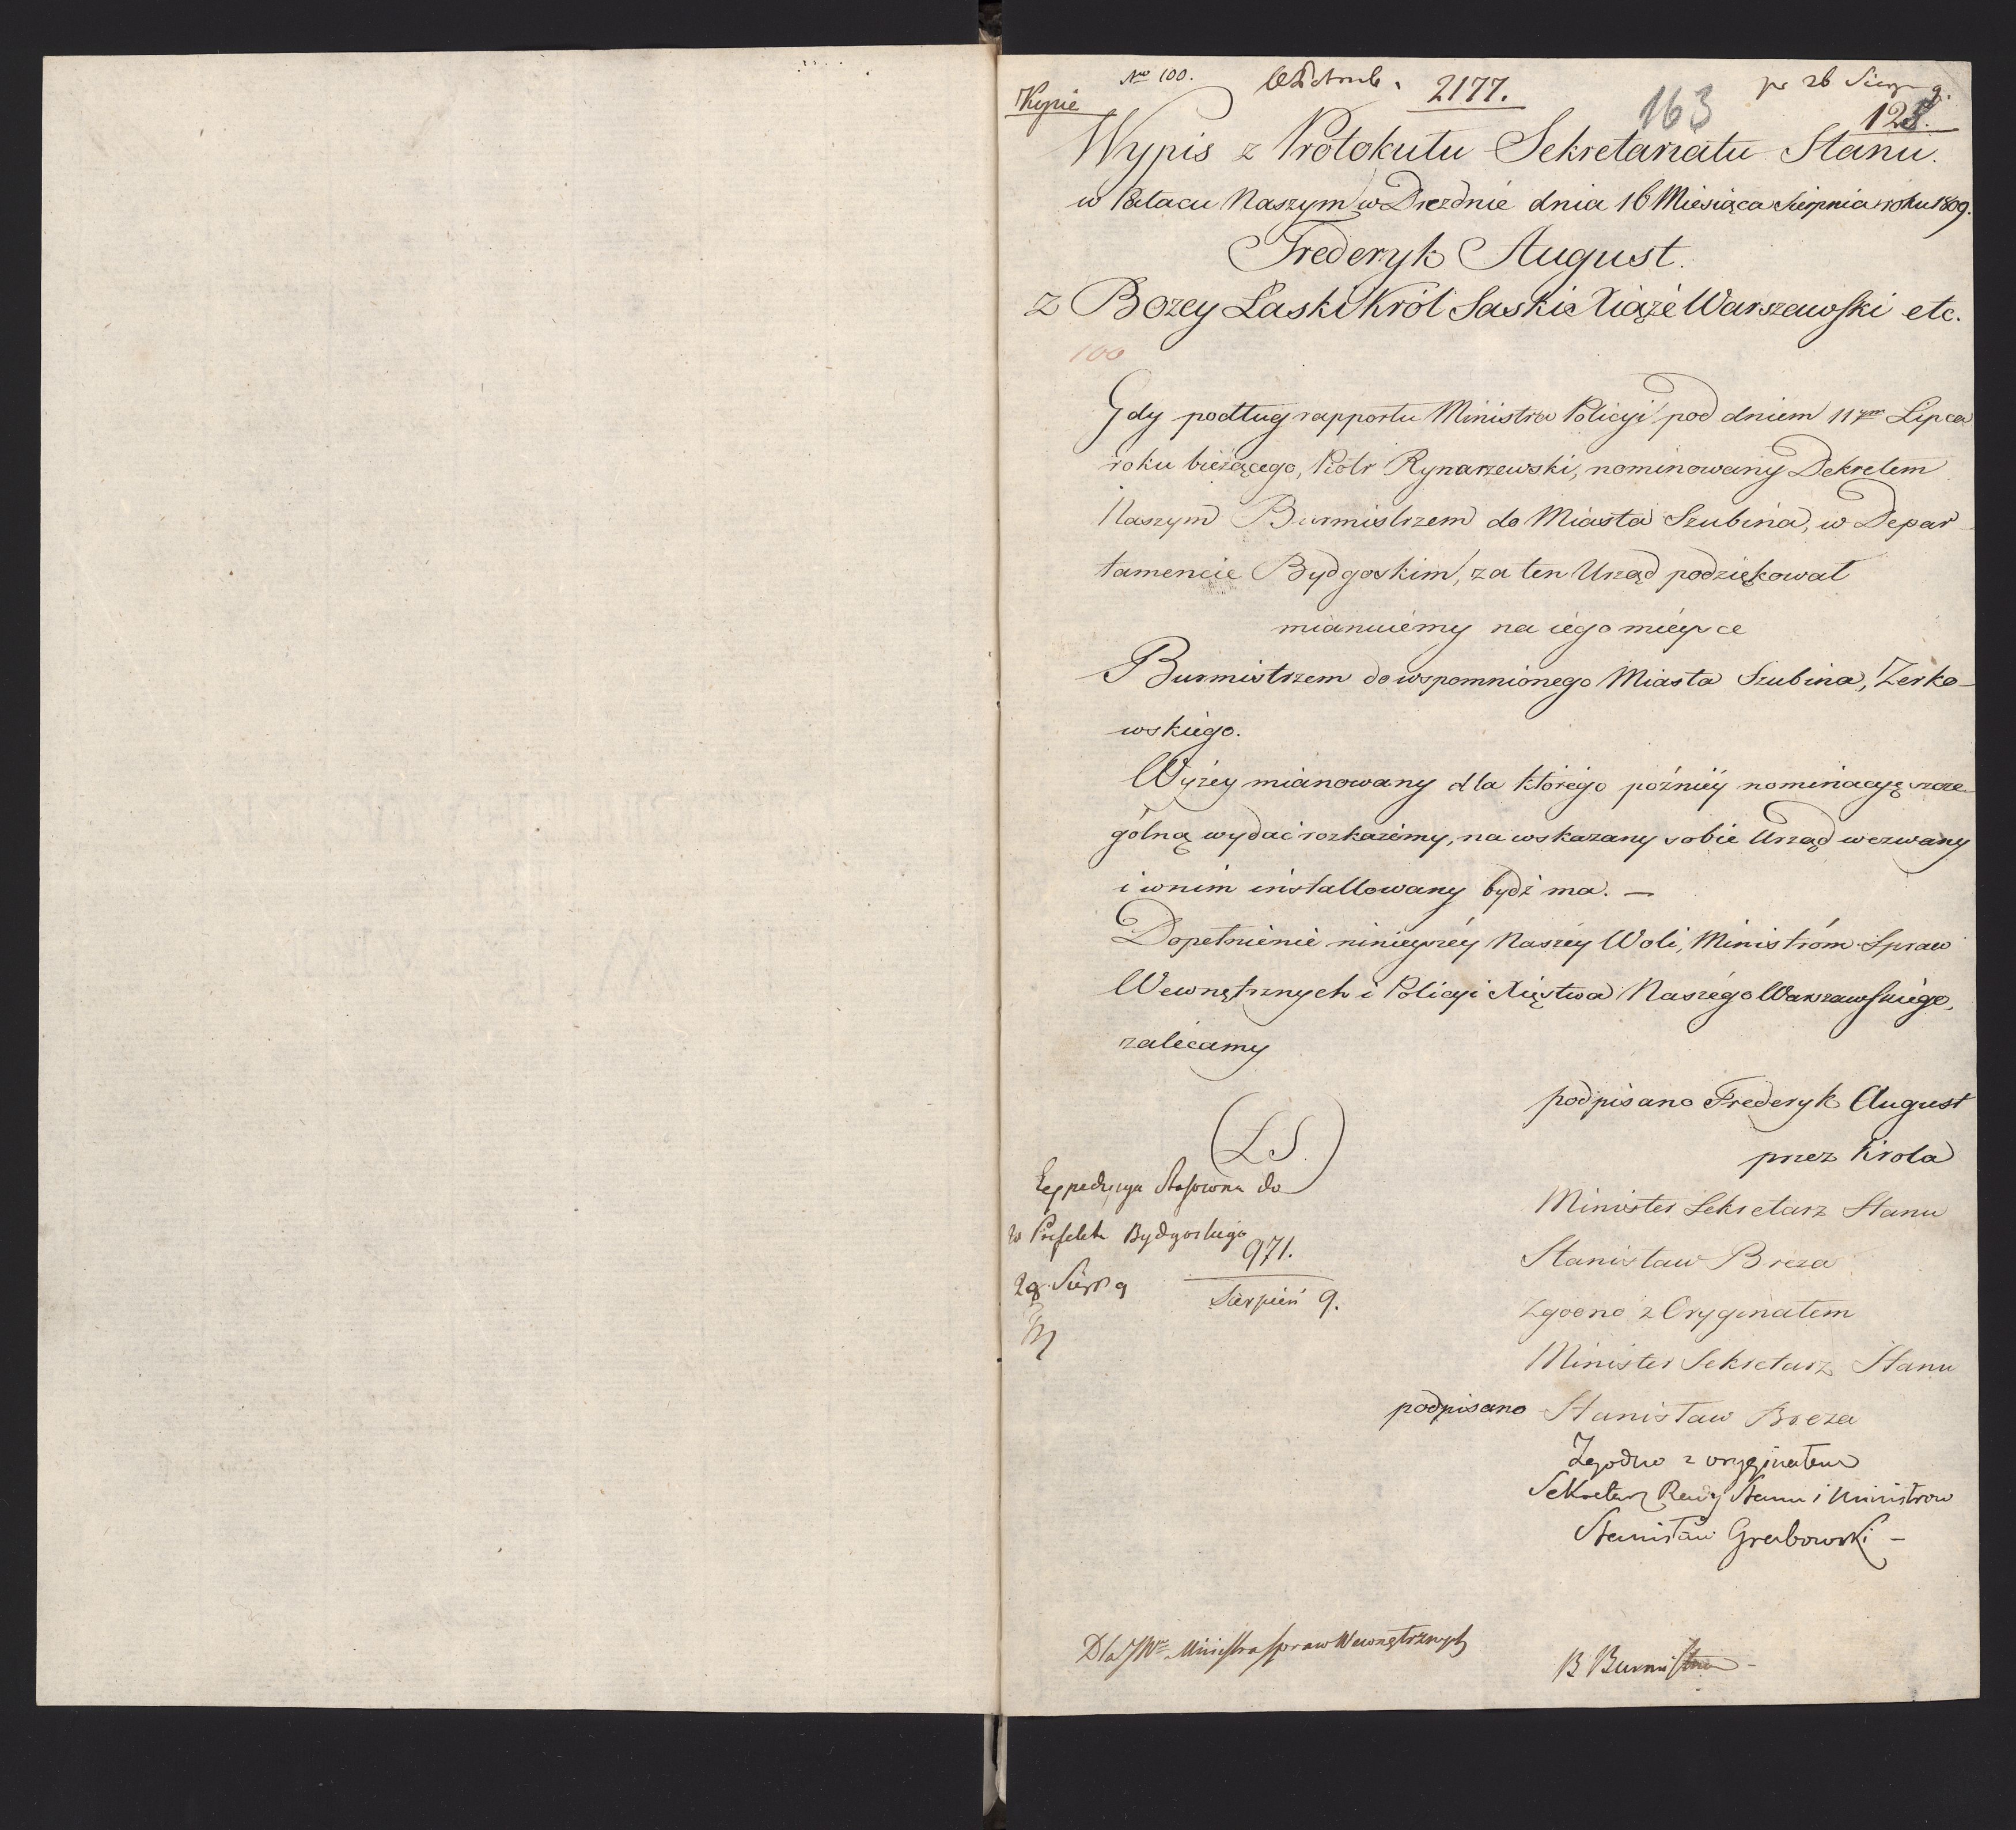 Nro 100. 2177. pr 26 Sierp 9.
Kopie 163 128.
Wypis z Protokułu Sekretariatu Stanu.
w Pałacu Naszym w Dreźnie dnia 16 Miesiąca Sierpnia roku 1809.
Frederyk August.
z Bozey Łaski Król Saski Xiąże Warszawski etc.
100
Gdy podług rapportu Ministra Policyi pod dniem 11 Lipca
roku bieżącego, Piotr Rynarzewski, nominowany Dekretem
Naszym Burmistrzem do Miasta Szubina, w Depar
tamencie Bydgoskim, za ten Urząd podziękował
mianuiemy na iego mieysce
Burmistrzem do wspomnionego Miasta Szubina, Zerko-
wskiego.
Wyżey mianowany dla którego pozniey nominacyę szcze-
gólną wydać rozkażemy, na wskazany sobie Urząd wezwany
i w nim installowany bydź ma. —
Dopełnienie ninieyszéy Naszéy Woli, Ministróm Spraw
Wewnętrznych i Policyi Xięstwa Naszégo Warszawskiego,
zalécamy
podpisano Frederyk August
przez Krola
(LS.)
Minister Sekretarz Stanu
Stanisław Breza
Zgodno z Oryginałem
Minister Sekretarz Stanu
podpisano Stanisław Breza
Zgodno z oryginałem
Sekretarz Rady Stanu i Ministrow
Stanisław Grabowski —
Expedycya stosowna do
Prefekta Bydgoskiego
971.
28 Sierp 9
Sierpień 9.
Dla JW Ministra Spraw Wewnętrznych
B Burmistrz